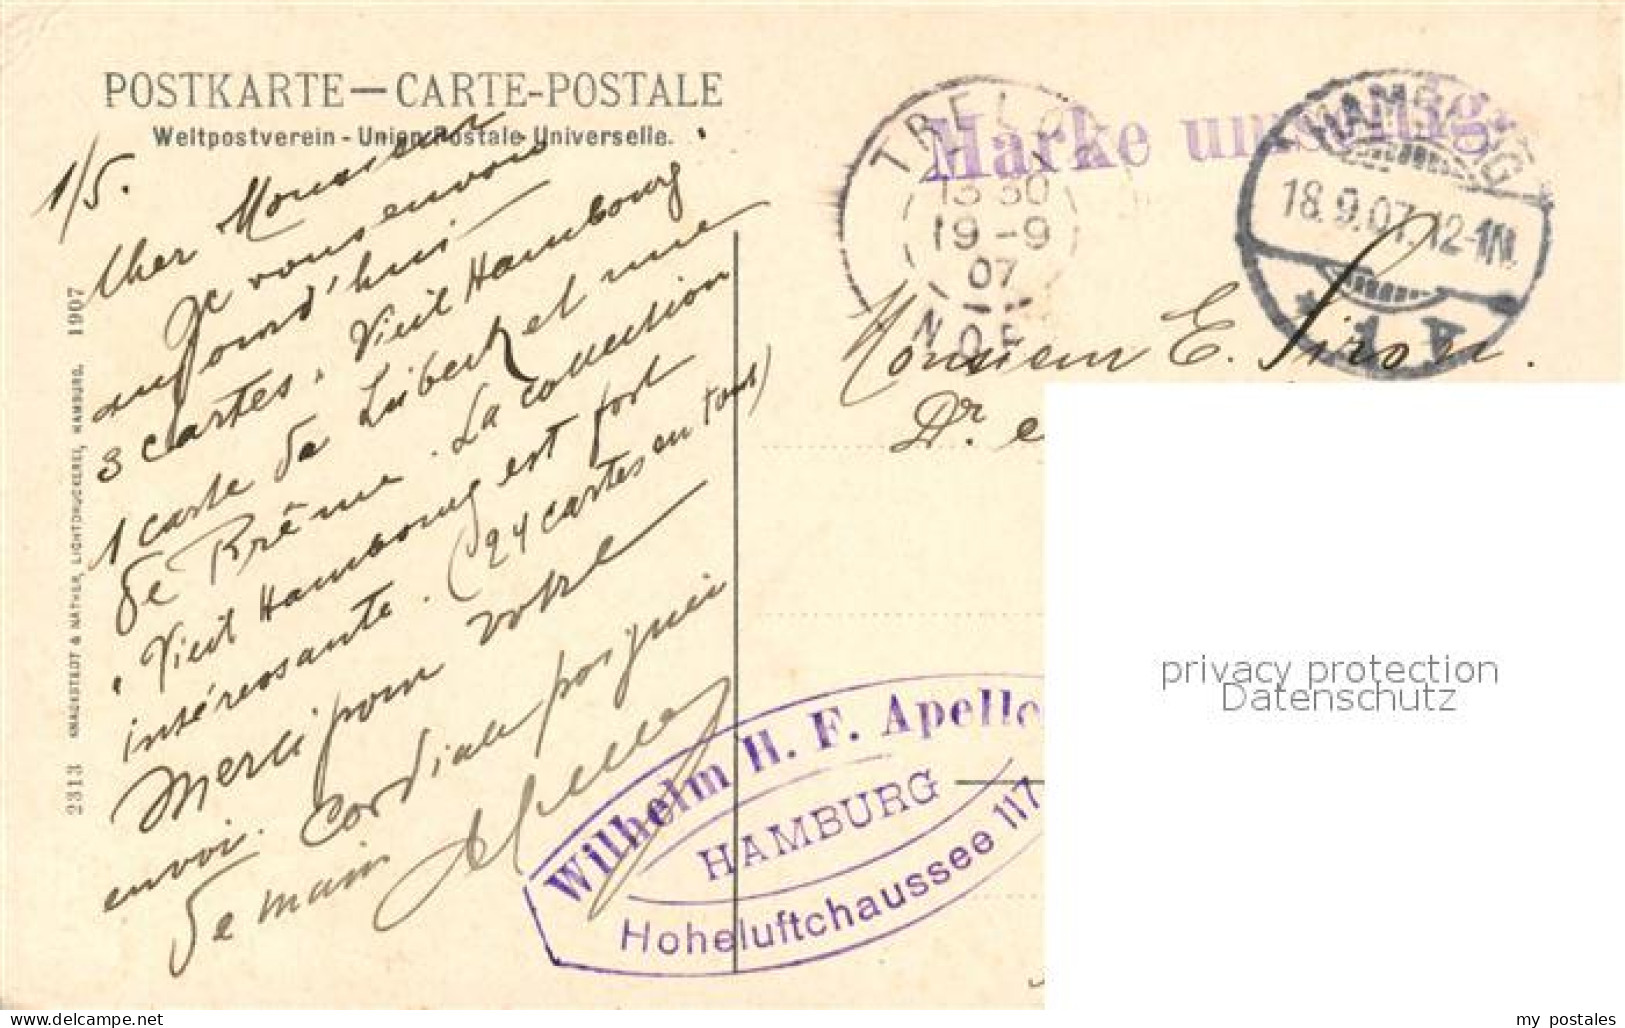 POSTKARTE — CARTE-POSTALE
Weltpostverein - Union Postale Universelle.
1/5.
Cher Monsieur
Je vous envoie
aujourd'hui
3 cartes. Vieil Hambourg
1 carte de Lubeck et une
de Brême. La collection
"Vieil Hambourg est fort
intéressante. (24 cartes en tout)
Merci pour votre
envoi. Cordiale poignée
de main
2313 KNACKSTEDT & NÄTHER, LICHTDRUCKEREI, HAMBURG. 1907
TRELO
13 30
19-9
07
NOR
Marke
HAMBURG
18.9.07. 12-1N.
* 1 A
Monsieur E. Piron.
Dr. e
Wilhelm H. F. Apello
HAMBURG
Hoheluftchaussee 117
privacy protection
Datenschutz
my postales